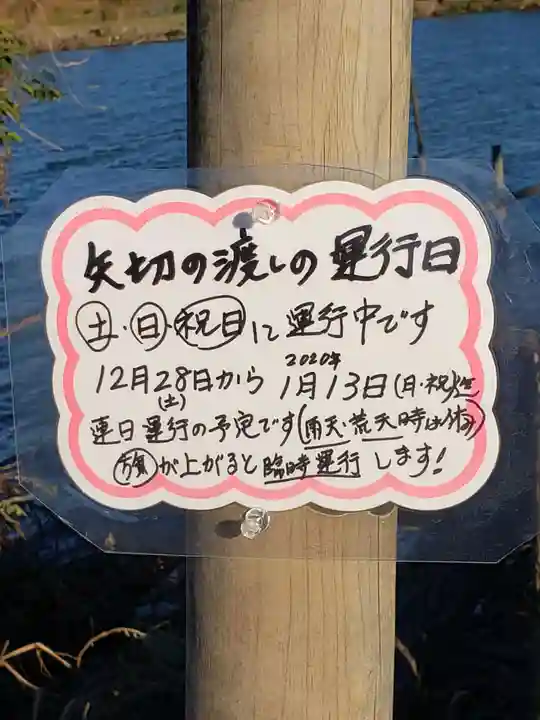 矢切の渡しの運行日
土・日・祝日に運行中です
12月28日(土)から 2020年1月13日(月・祝)
連日運行の予定です(雨天・荒天時は休み)
旗が上がると臨時運行します!